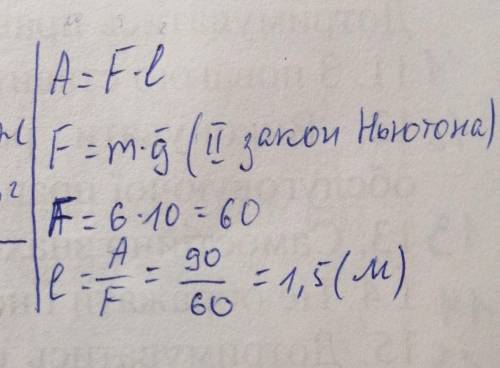 A = F·l
F = m·g̅ (II закон Ньютона)
F = 6·10 = 60
l = A/F = 90/60 = 1,5 (м)